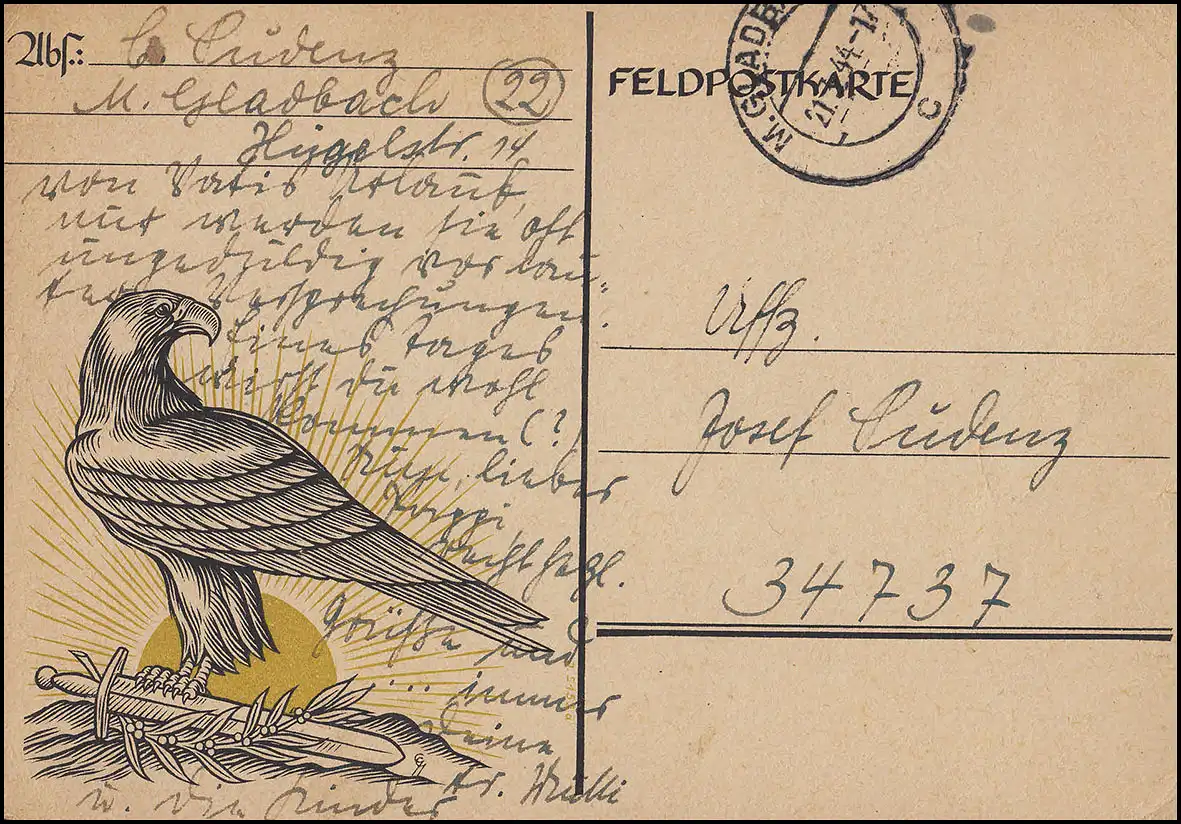 Abs.: C. Ludenz
M. Gladbach (22)
Hügelstr. 14
von Vatis Urlaub,
nur werden sie oft
ungeduldig vor lau-
ter Versprechungen.
Eines Tages
wirst du wohl
kommen (?)
lieber
Pappi,
recht herzl.
Grüsse und
.... immer
Deine
tr. Mutti
u. die Kinder
FELDPOSTKARTE
M. GLADBACH
21. 44-17
C
Uffz.
Josef Ludenz
34737